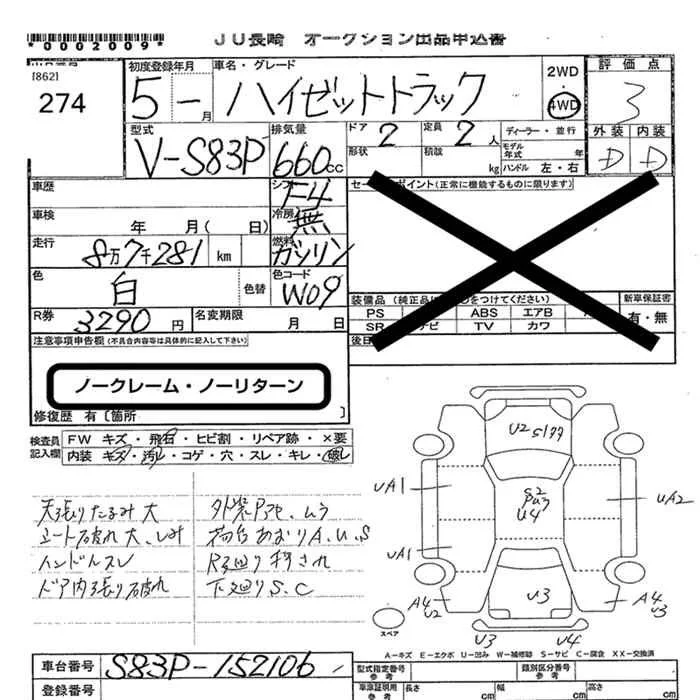 *0002009*
JU長崎 オークション出品申込書
[862]
274
初度登録年月
5-月
車名・グレード
ハイゼットトラック
2WD
・
4WD
評価点
3
外装 内装
D D
型式
V-S83P
排気量
660cc
ドア
2
定員
2人
形状
積載
kg
ディーラー・並行
モデル年式 年
ハンドル 左・右
車歴
シフト
F4
車検
年 月( 日)
冷房
無
走行
8万7千281 km
燃料
ガソリン
色
白
色替
色コード
W09
R券
3290円
名変期限
月 日
セールスポイント(正常に機能するものに限ります)
装備品
(純正品に○をつけてください)
PS
ABS エアB
SR ナビ TV カワ
新車保証書
有・無
注意事項申告欄(不具合内容等は具体的に記入して下さい)
ノークレーム・ノーリターン
修復歴 有〔箇所 〕
検査員記入欄
FW キズ・飛石・ヒビ割・リペア跡・×要
内装 キズ・汚レ・コゲ・穴・スレ・キレ・破レ
天張りたるみ大
シート破れ大、しみ
ハンドルスレ
ドア内張り破れ
外装Pアセ、ムラ
荷台あおりA.U.S
下廻りS.C
U2 S177
UA1
S2
U4
UA2
UA1
U3
A4
U2
A4
U3
スペア
U3 U4
A-キズ E-エクボ U-凹み W-補修跡 S-サビ C-腐食 XX-交換済
車台番号
S83P-152106
登録番号
型式指定番号
参考
類別区分番号
参考
車庫証明用
参考
長さ
cm
幅
cm
高さ
cm